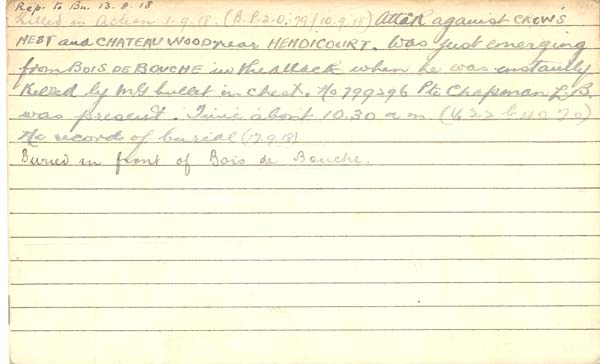 Rep. to Bn. 13-8-18
Killed in Action 1-9-18. (B.P.2.O.79/10-9-18) Attack against CROW'S
NEST and CHATEAU WOOD near HENDICOURT. Was just emerging
from BOIS DE BOUCHE in the attack when he was instantly
Killed by MG bullet in chest. No 799296 Pte Chapman L.B.
was present. Time about 10.30 a.m.
No record of burial (17-9-18)
Buried in front of Bois de Bouche.